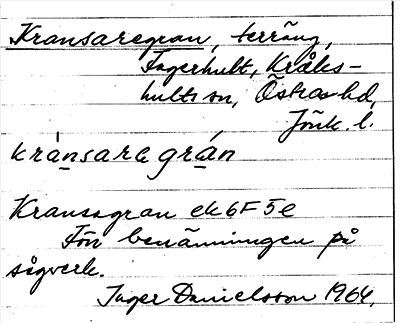 Kransaregran, terräng,
Fagerhult, Kråks-
hults sn, Östra hd,
Jönk. l.
krànsara grán
Kransagran ek 6F 5e
Förr benämningen på
sågverk.
Inger Danielsson 1964.